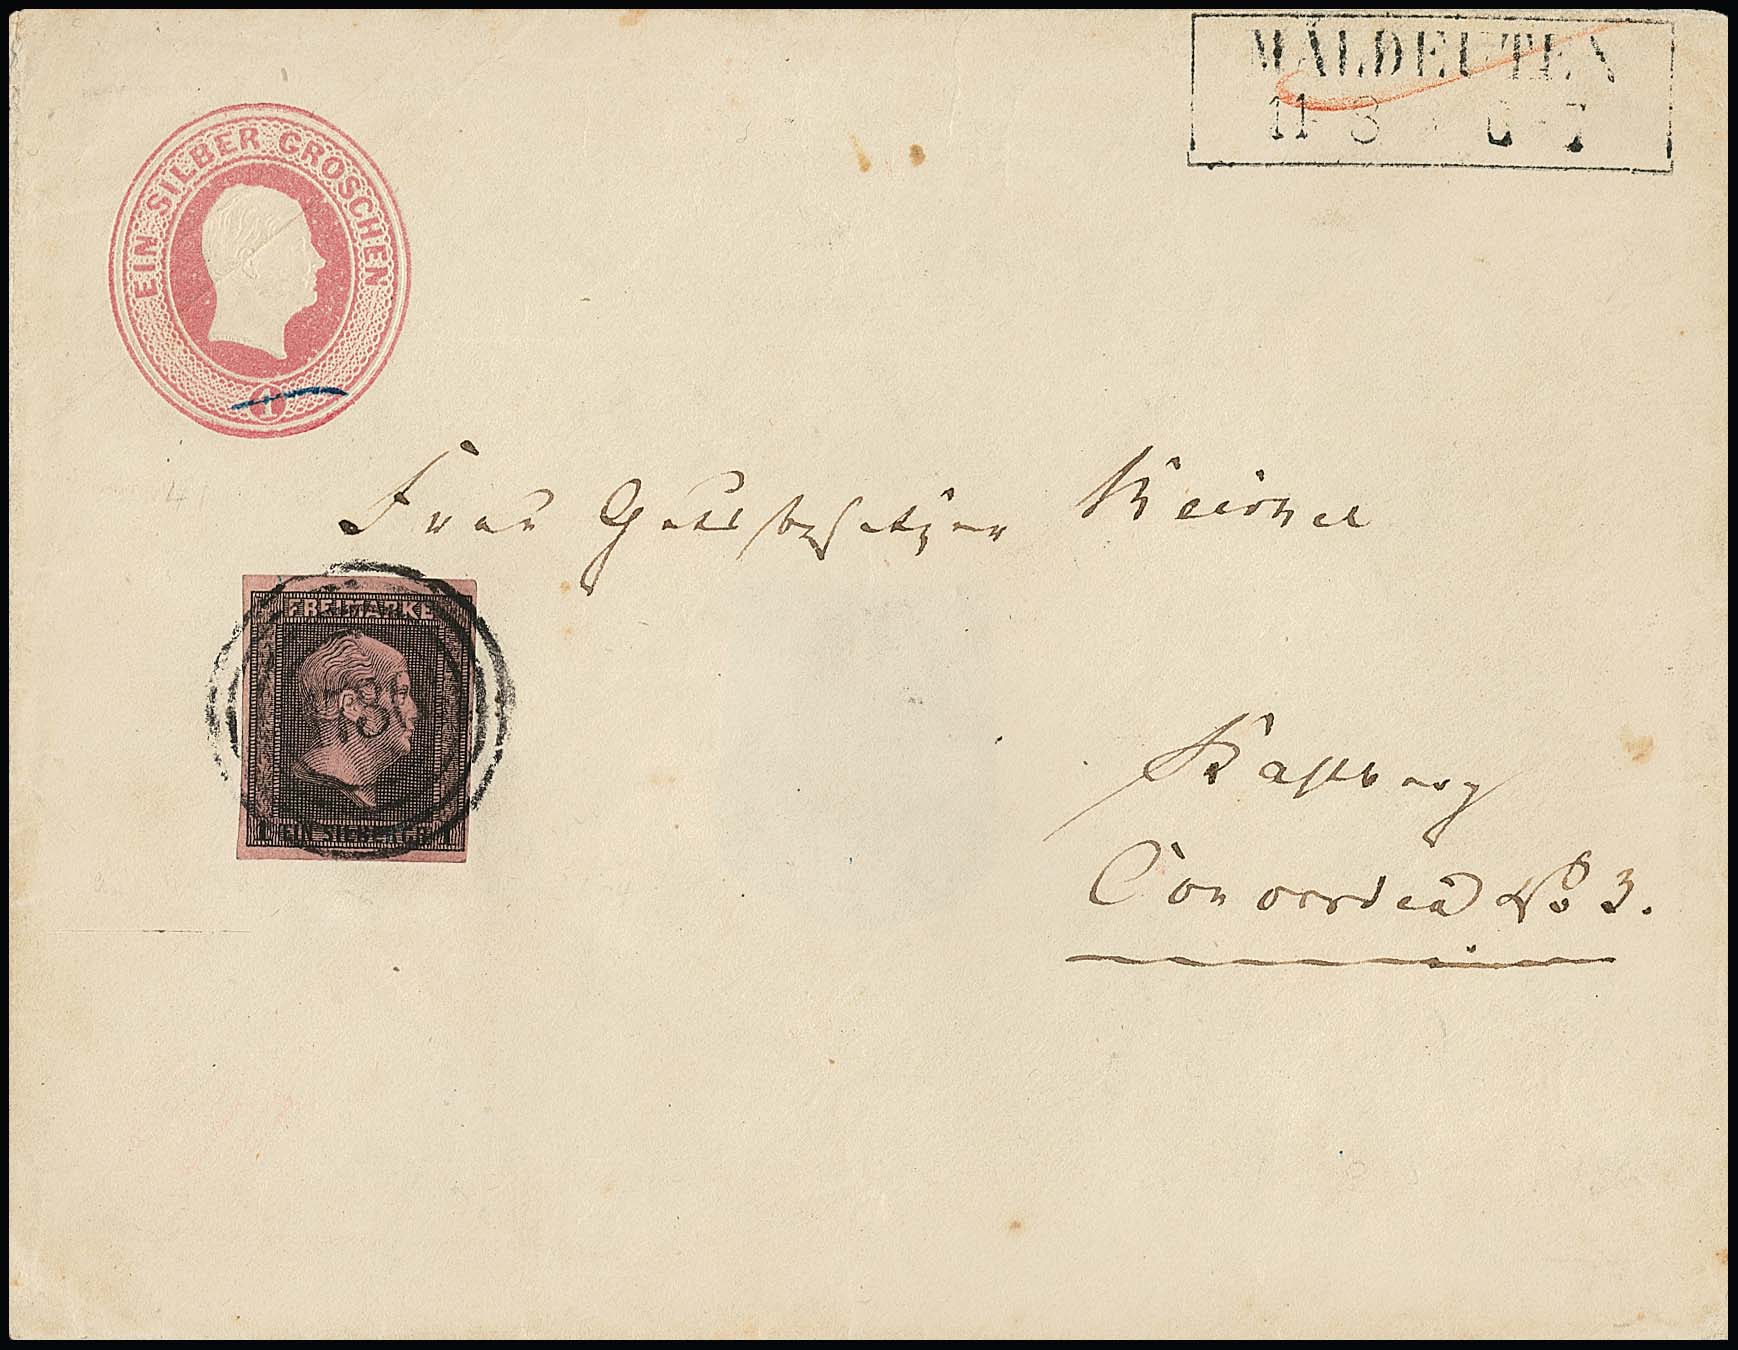 MALDEUTEN
11 3 * 6-7
EIN SILBER GROSCHEN
1
Frau Gutsbesitzer
FREIMARKE
1 EIN SILBERGR. 1
Rastenburg
Concordia No 3.